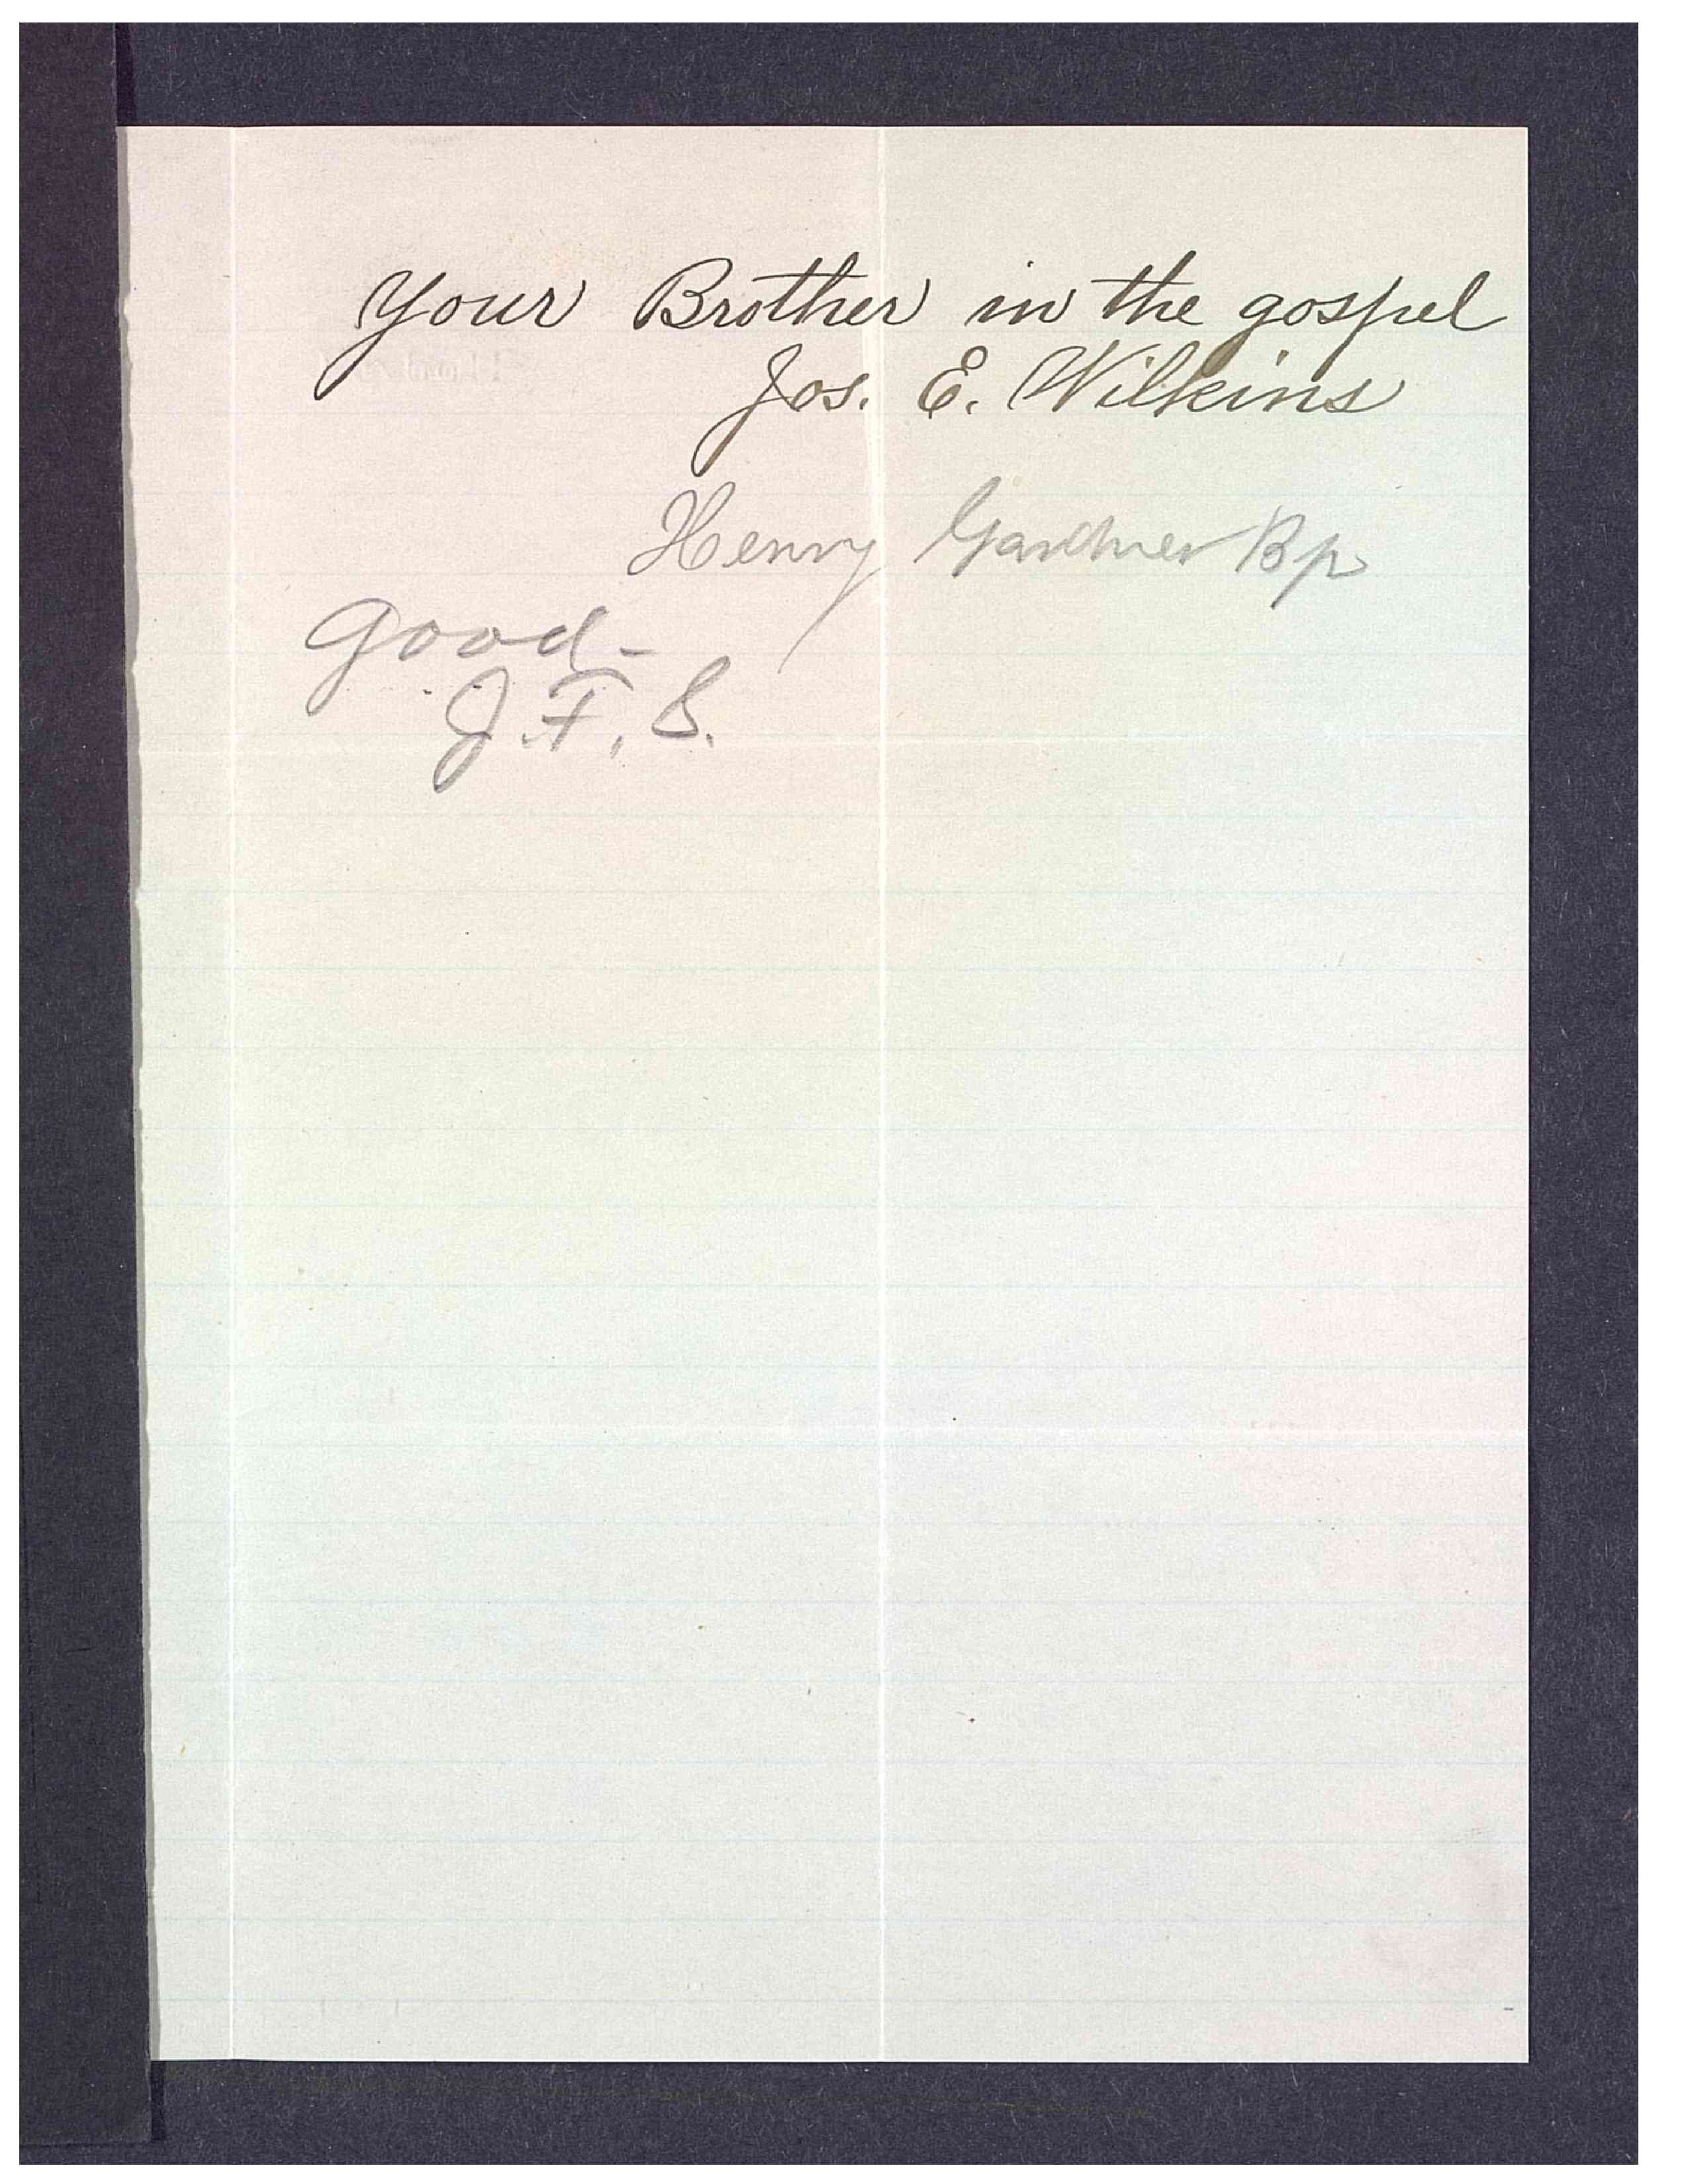 Your Brother in the gospel
Jos. E. Wilkins
Henry Gardner Bp
Good-
J. F. S.